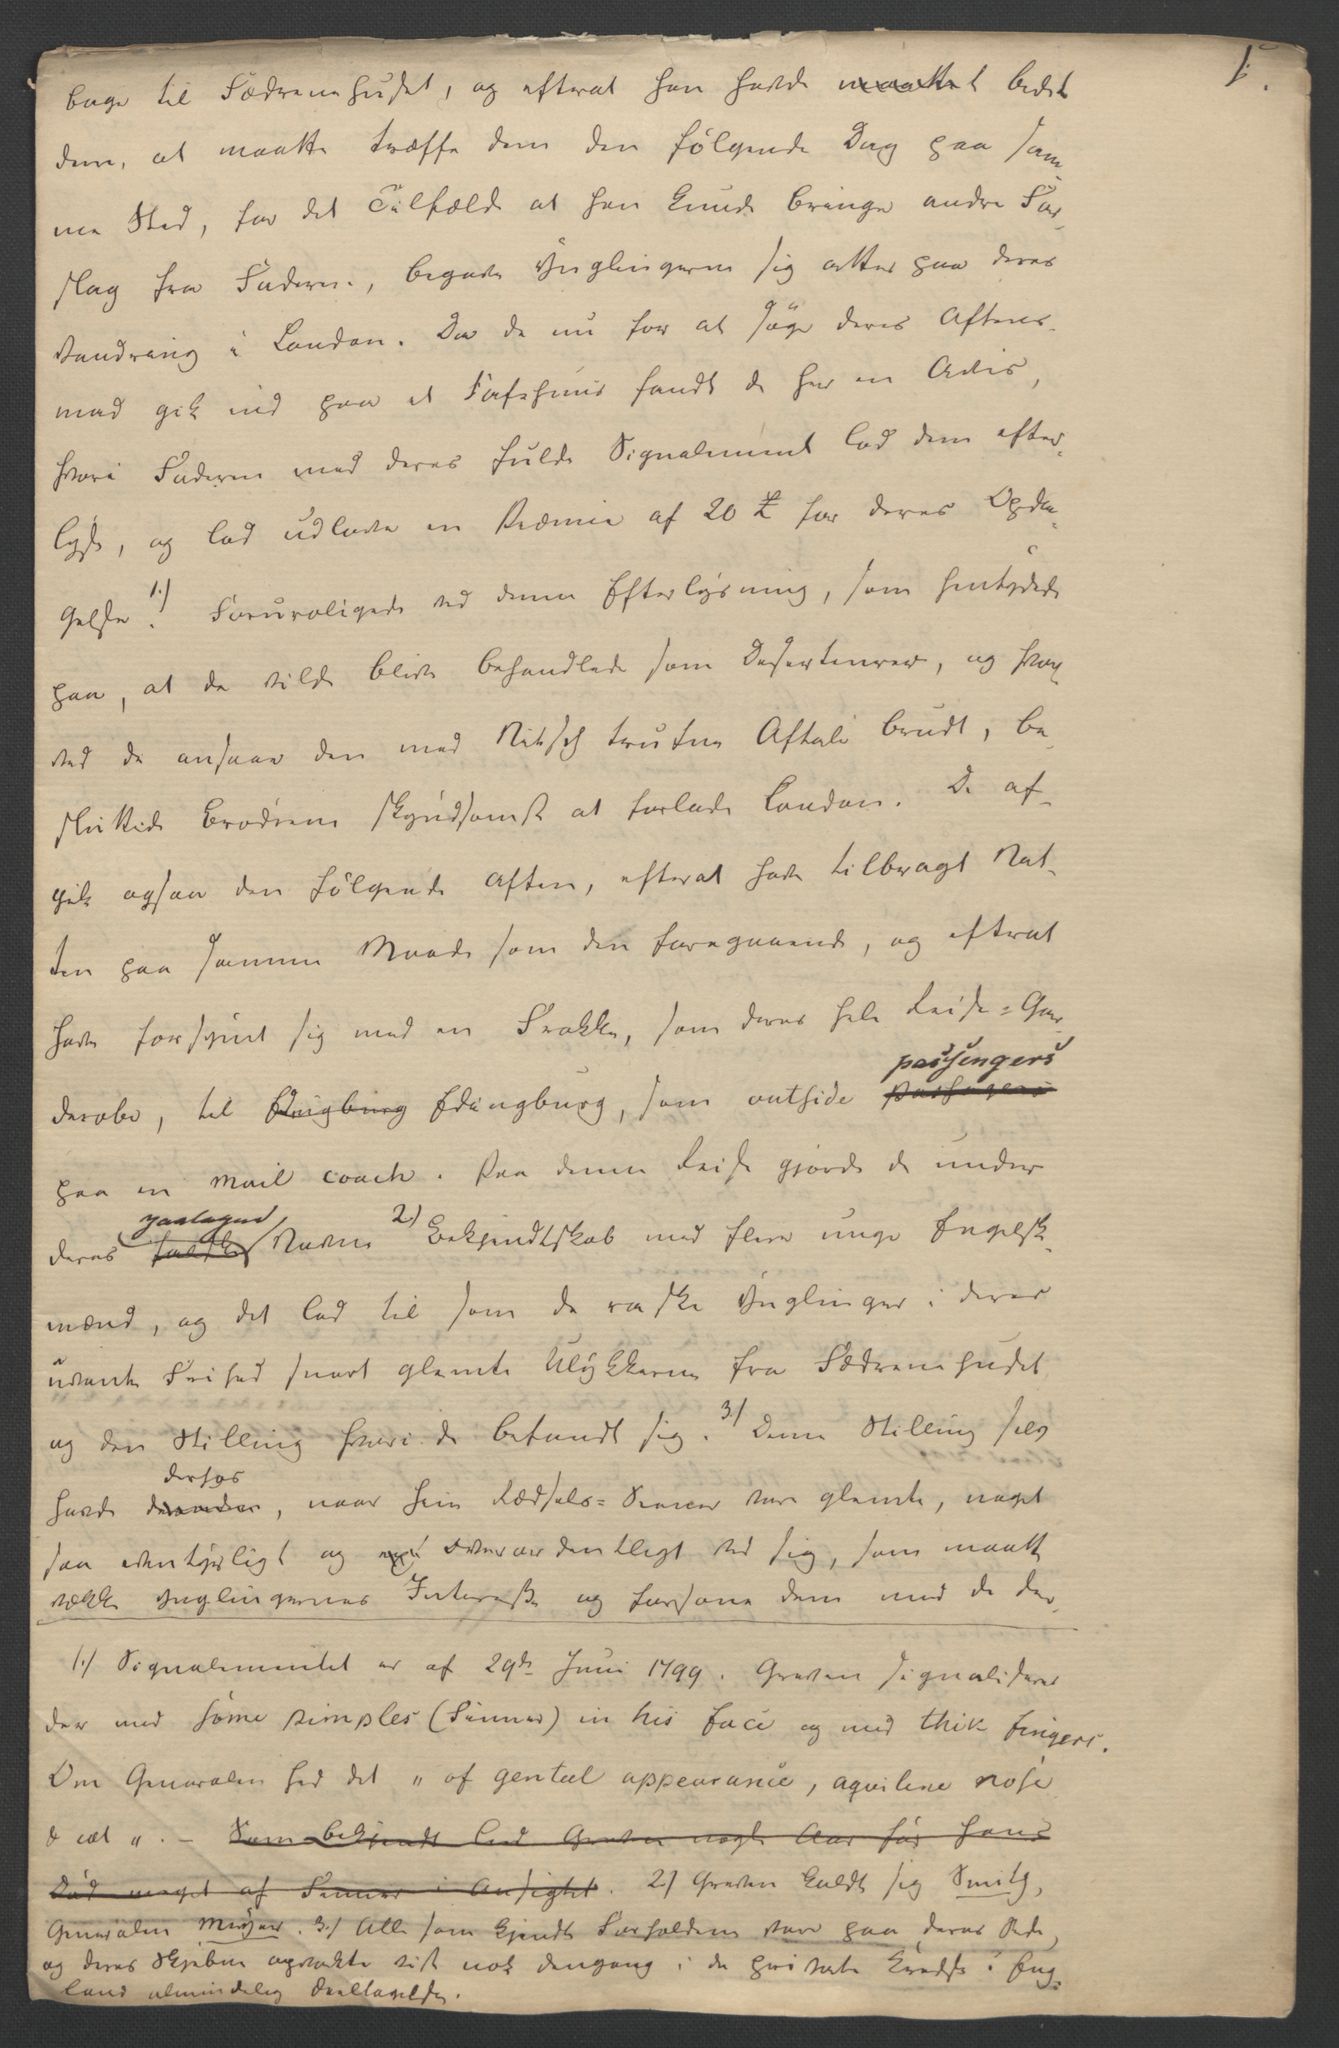 1.
bage til Fædrenehuset, og efterat han havde maattet bedet
dem, at maatte træffe dem den følgende Dag paa sam-
me Sted, for det Tilfælde at han kunde bringe andre For-
slag fra Faderen, begave Ynglingerne sig atter paa deres
Vandring i London. Da de nu for at søge deres Aftens-
mad gik ind paa et Kafehuus fandt de her en Avis,
hvori Faderen med deres fulde Signalement lod dem efter-
lyse, og lod udlove en Præmie af 20 £ for deres Opda-
gelse. 1.) Foruroligede ved denne Efterlysning, som hentydede
paa, at de vilde blive behandlede som Deserteurer, og hvor-
ved de ansaae den med Nitsch trufne Aftale brudt, be-
sluttede Brødrene skyndsomst at forlade London. De af-
gik ogsaa den følgende Aften, efterat have tilbragt Nat-
ten paa samme Maade som den foregaaende, og efterat
have forsynet sig med en Frakke, som deres hele Reise-Gar-
passengers
derobe, til Edingburg, som outside
paa en mail coach. Paa denne Reise gjorde de under
paatagne
deres falske Navne 2.) Bekjendtskab med flere unge Engelsk-
mænd, og det lod til som de raske Ynglinger i deres
uvante Frihed snart glemte Ulykkerne fra Fædrenehuset
og den Stilling hvori de befandt sig. 3.) Denne Stilling selv
derhos
havde desuden, naar hine Rædsels-Scener vare glemte, noget
saa eventyrligt og overordentligt ved sig, som maatte
vække Ynglingernes Interesse og forsone dem med de der-
1.) Signalementet er af 29de Juni 1799. Greven signaliseres
der med some pimples (Finner) in his face og med thik fingers.
Om Generalen hed det „of genteel appearance, aquiline nose
& cæt“. – Som bekjendt led Greven nogle Aar før hans
Død meget af Finner i Ansigtet. 2.) Greven kaldte sig Smith,
Generalen Meyer. 3.) Alle som kjendte Forholdene vare paa deres Side,
og deres Skjebne opvakte vist nok dengang i de private Kredse i Eng-
land almindelig Deeltagelse.